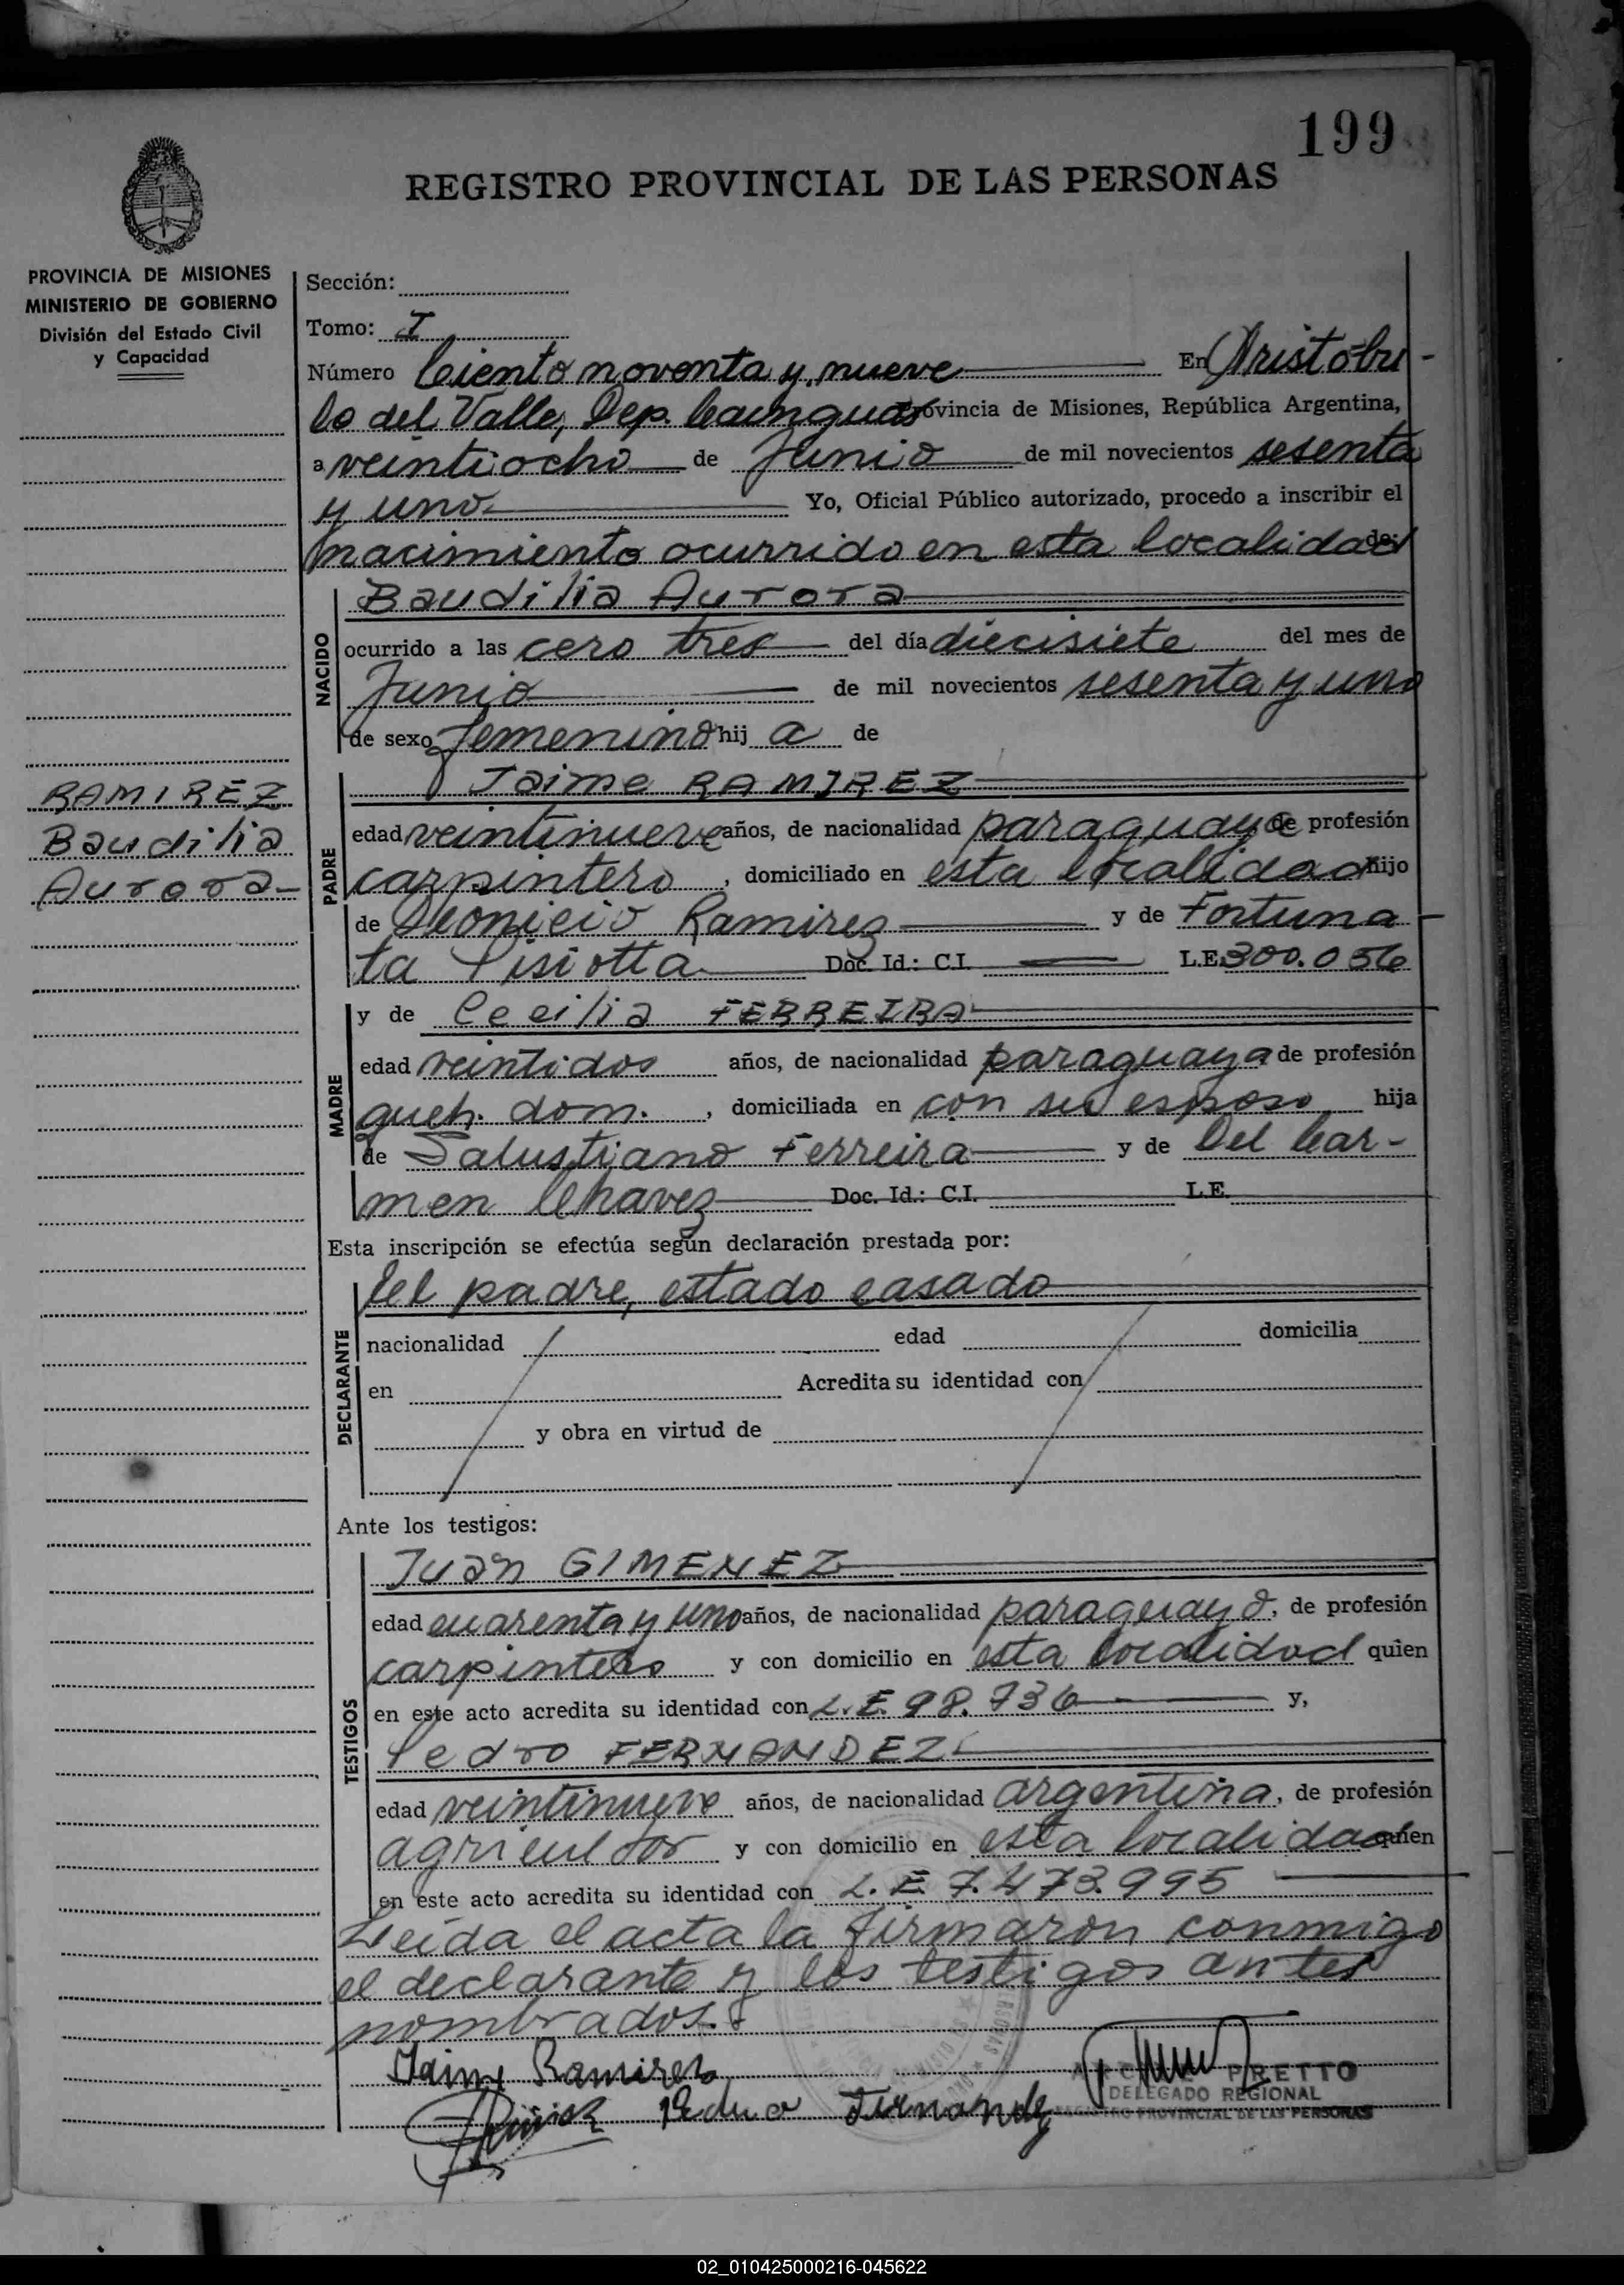 199
REGISTRO PROVINCIAL DE LAS PERSONAS
PROVINCIA DE MISIONES
MINISTERIO DE GOBIERNO
División del Estado Civil
y Capacidad
Sección:
Tomo: I
Número Ciento noventa y nueve En Aristóbu-
lo del Valle, Dep. Cainguas Provincia de Misiones, República Argentina,
a veintiocho de Junio de mil novecientos sesenta
y uno. Yo, Oficial Público autorizado, procedo a inscribir el
nacimiento ocurrido en esta localidad de:
NACIDO
Baudilia Aurora
ocurrido a las cero tres del día diecisiete del mes de
Junio de mil novecientos sesenta y uno
de sexo femenino hij a de
RAMIREZ
Baudilia
Aurora-
PADRE
Jaime RAMIREZ
edad veintinueve años, de nacionalidad paraguaya de profesión
carpintero, domiciliado en esta localidad hijo
de Deonicio Ramirez y de Fortuna-
ta Pisiotta Doc. Id.: C.I. L.E. 300.056
MADRE
y de Cecilia FERREIRA
edad veintidos años, de nacionalidad paraguaya de profesión
queh. dom., domiciliada en con su esposo hija
de Salustiano Ferreira y de Del Car-
men Chavez Doc. Id.: C.I. L.E.
Esta inscripción se efectúa según declaración prestada por:
DECLARANTE
el padre, estado casado
nacionalidad edad domicilia
en Acredita su identidad con
y obra en virtud de
Ante los testigos:
TESTIGOS
Juan GIMENEZ
edad cuarenta y uno años, de nacionalidad paraguayo, de profesión
carpintero y con domicilio en esta localidad quien
en este acto acredita su identidad con L.E. 98.736 y,
Pedro FERNANDEZ
edad veintinueve años, de nacionalidad argentina, de profesión
agricultor y con domicilio en esta localidad quien
en este acto acredita su identidad con L.E. 7.473.995
Leída el acta la firmaron conmigo
el declarante y los testigos antes
nombrados.
Jaime Ramirez
Pedro Fernandez
PRETTO
DELEGADO REGIONAL
REGISTRO PROVINCIAL DE LAS PERSONAS
02_010425000216-045622